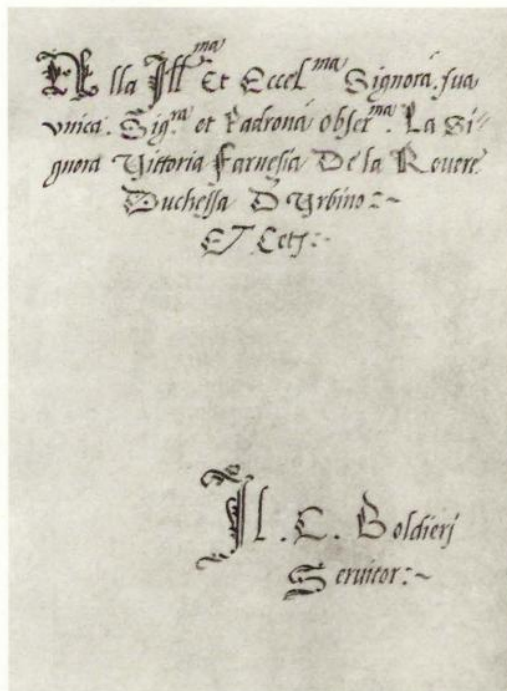 Alla Ill^ma Et Eccel^ma Signora. sua
vnica. Sig^ra. et Padrona obser^ma. La Si=
gnora Vittoria Farnesia De la Rouere
Duchessa D Vrbino:~
ET Cetj:~
Il. C. Boldierj
Seruitor:~